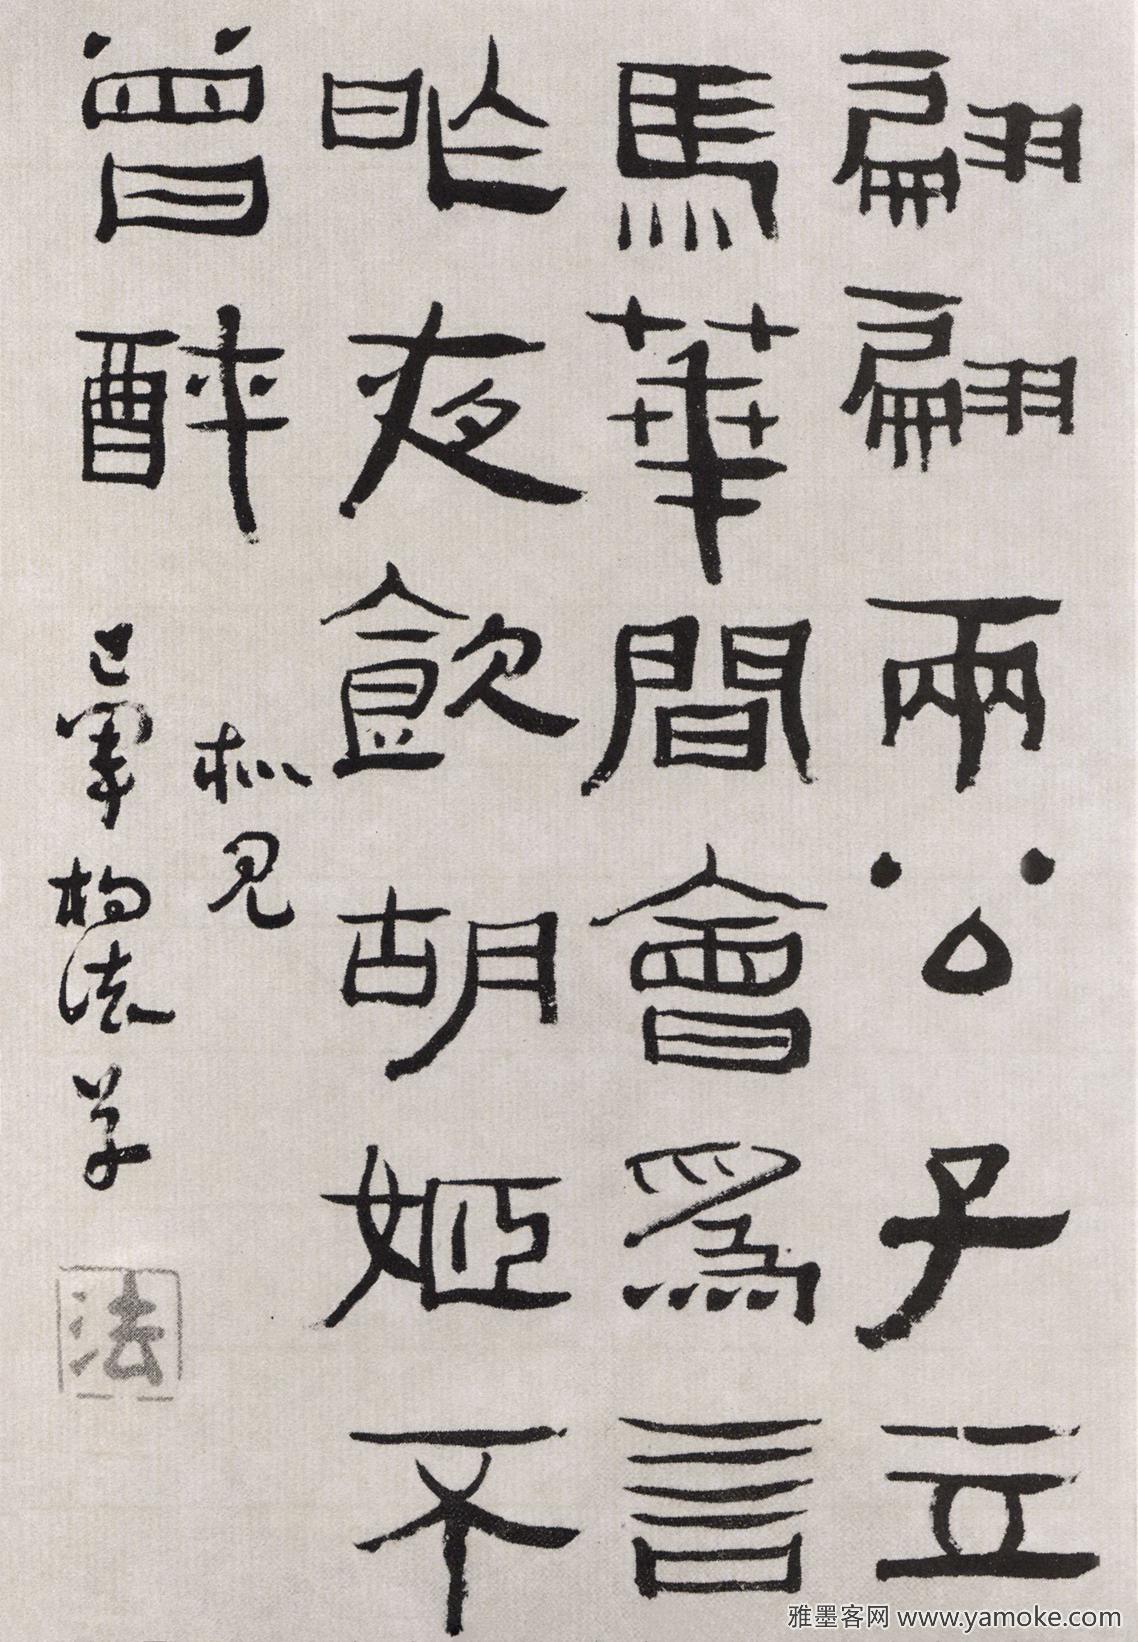 翩翩兩公子立
馬華間會爲言
昨夜飲胡姬不
曾醉
枞見
軍枸法草
法
雅墨客网 www.yamoke.com